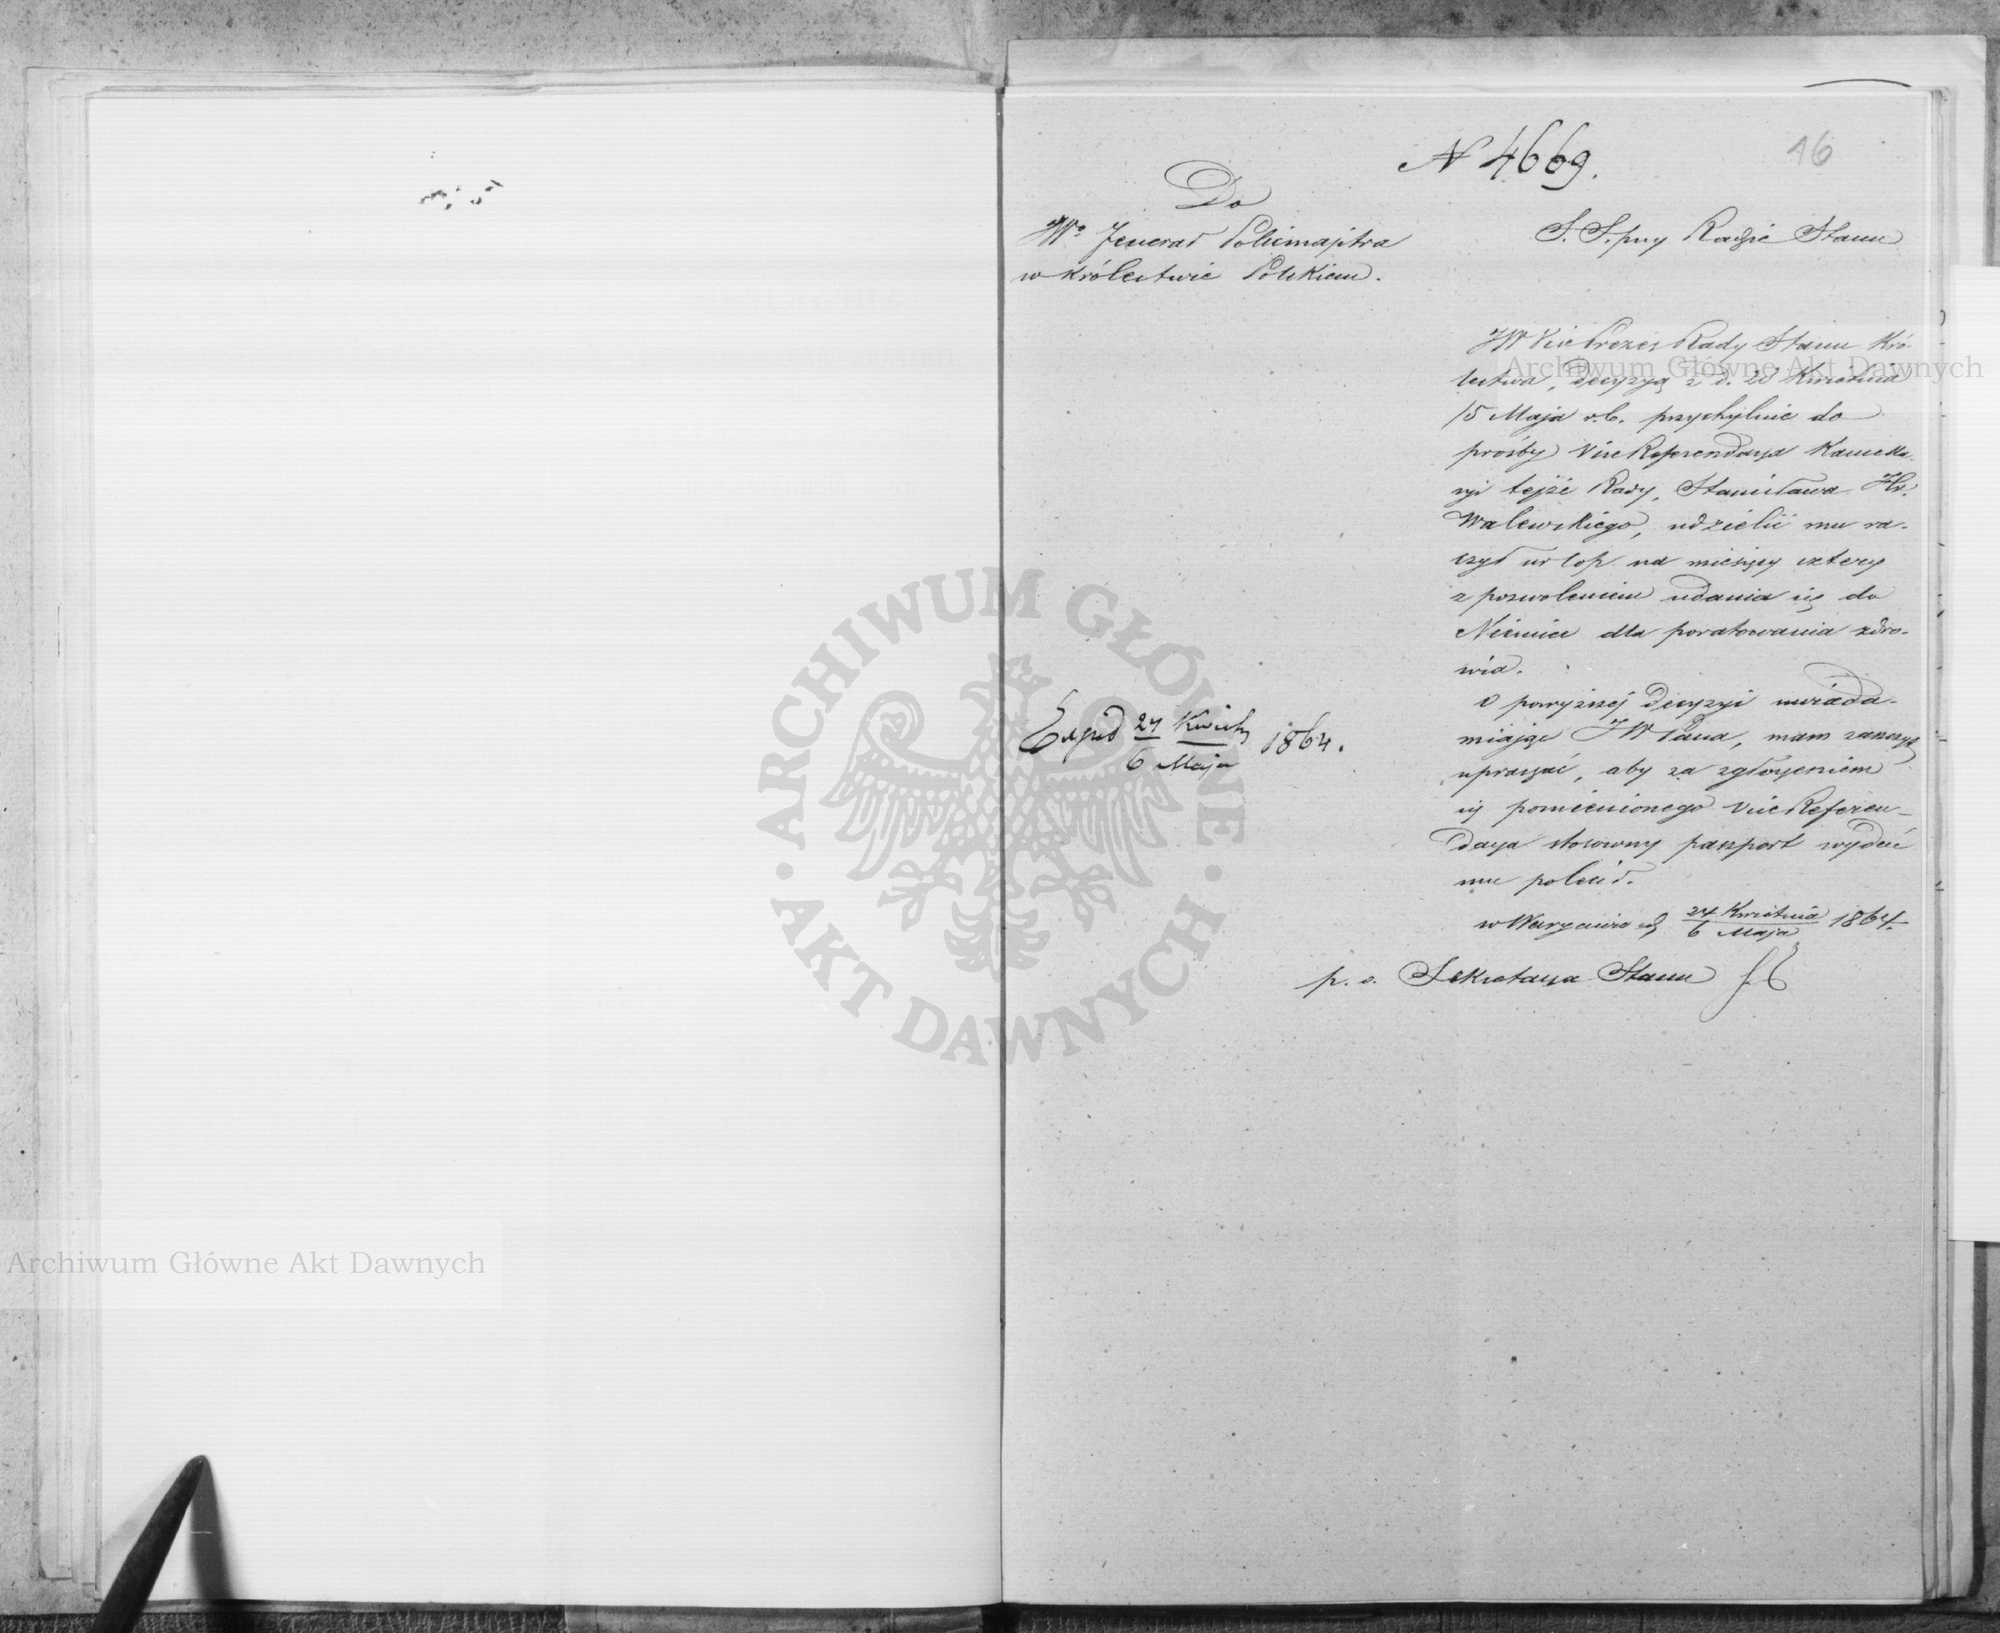 N 4669.
16
Do
JWo Jenerał Policmajstra
w Królestwie Polskiem.
S. S. przy Radzie Stanu
JW Vice Prezes Rady Stanu Kró-
lestwa, decyzyą z d. Kwietnia
/5 Maja r.b. przychylnie do
prośby Vice Referendarza Kancella-
ryi tejże Rady, Stanisława Hr.
Walewskiego, udzielić mu ra-
czył urlop na miesięcy cztery
z pozwoleniem udania się do
Niemiec dla poratowania zdro-
wia.
O powyższej decyzyi uwiada-
miając JW Pana, mam zaszczyt
upraszać, aby za zgłoszeniem
się pomienionego Vice Referen-
darza stosowny paszport wydać
mu polecił.
w Warszawie d. 24 Kwietnia / 6 Maja 1864.
p. o. Sekretarza Stanu
Exped 24 Kwiet / 6 Maja 1864.
Archiwum Główne Akt Dawnych
ARCHIWUM GŁÓWNE · AKT DAWNYCH ·
Archiwum Główne Akt Dawnych